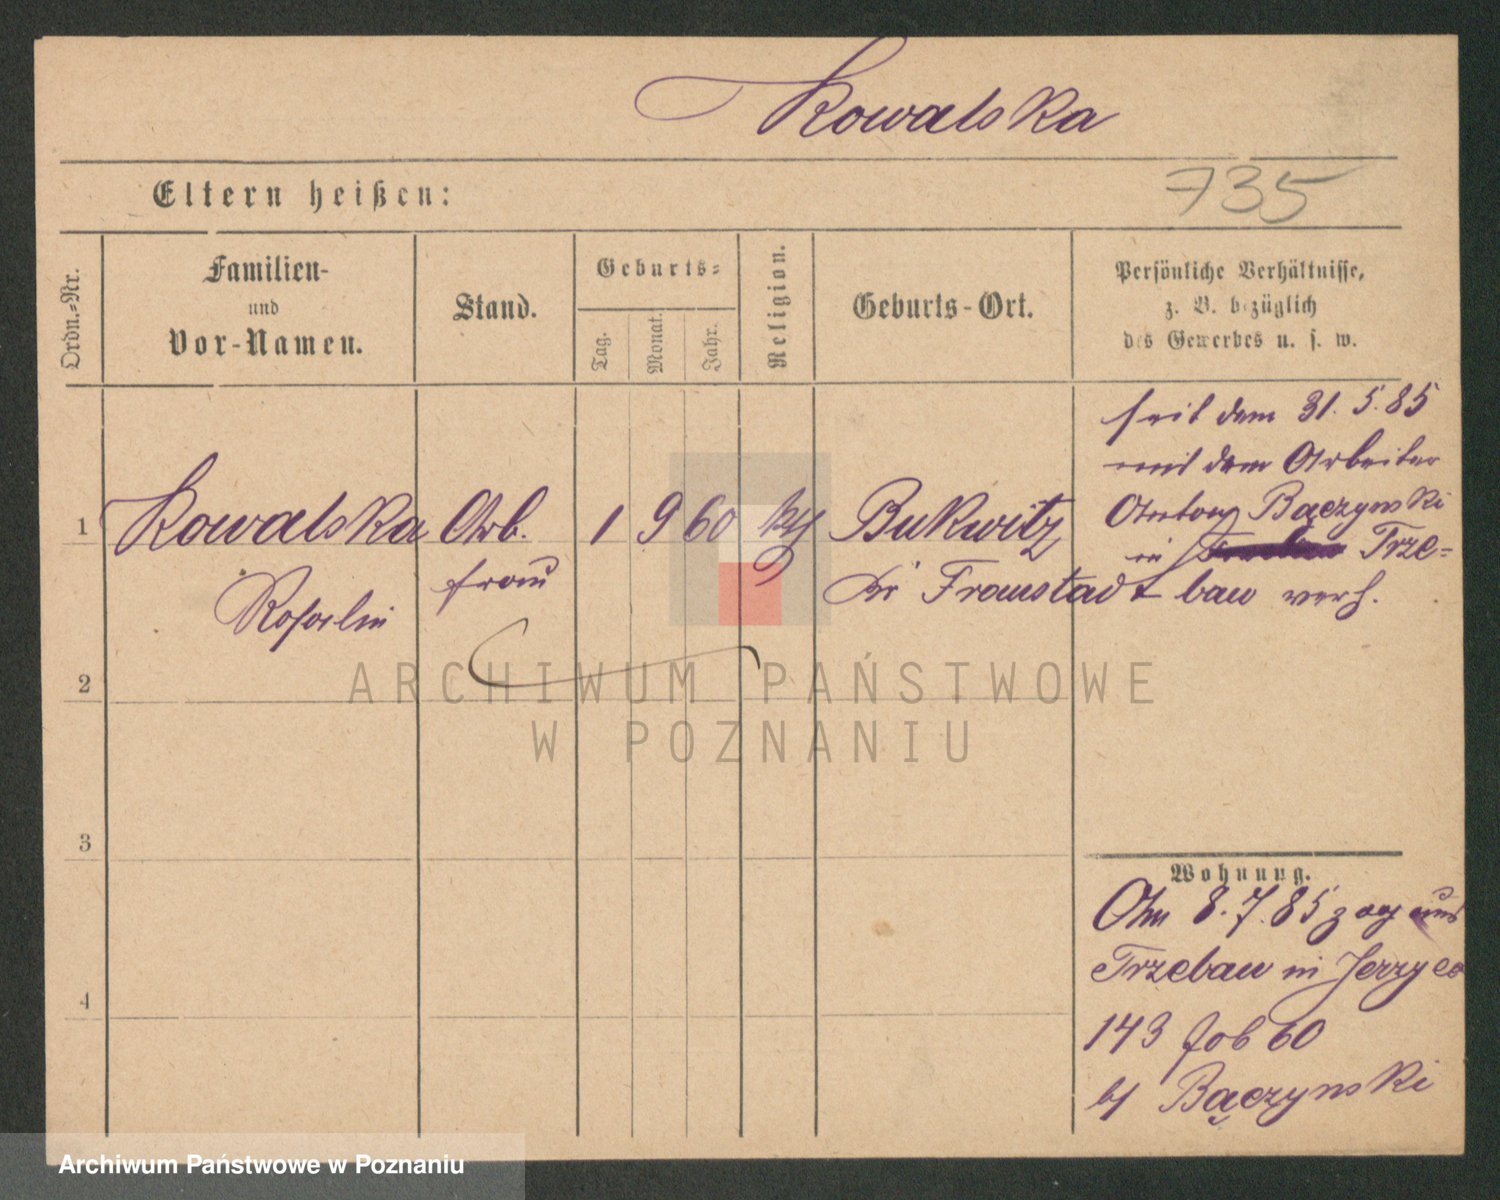 Kowalska
Eltern heißen:
735
Ordn.-Nr.
Familien-
und
Vor-Namen.
Stand.
Geburts-
Tag.
Monat.
Jahr.
Religion.
Geburts-Ort.
Persönliche Verhältnisse,
z. B. bezüglich
des Gewerbes u. s. w.
1
Kowalska
Rosalie
Arb.
frau
1 9 60
kth
Bukwitz
Kr Fraustadt
seit dem 31. 5. 85
mit dem Arbeiter
Anton Bączynski
in Trze-
bau verh.
2
3
4
Wohnung.
Am 8. 7. 85 zog aus
Trzebau in Jerzyce
143 60
b/ Bączynski
ARCHIWUM PAŃSTWOWE
W POZNANIU
Archiwum Państwowe w Poznaniu